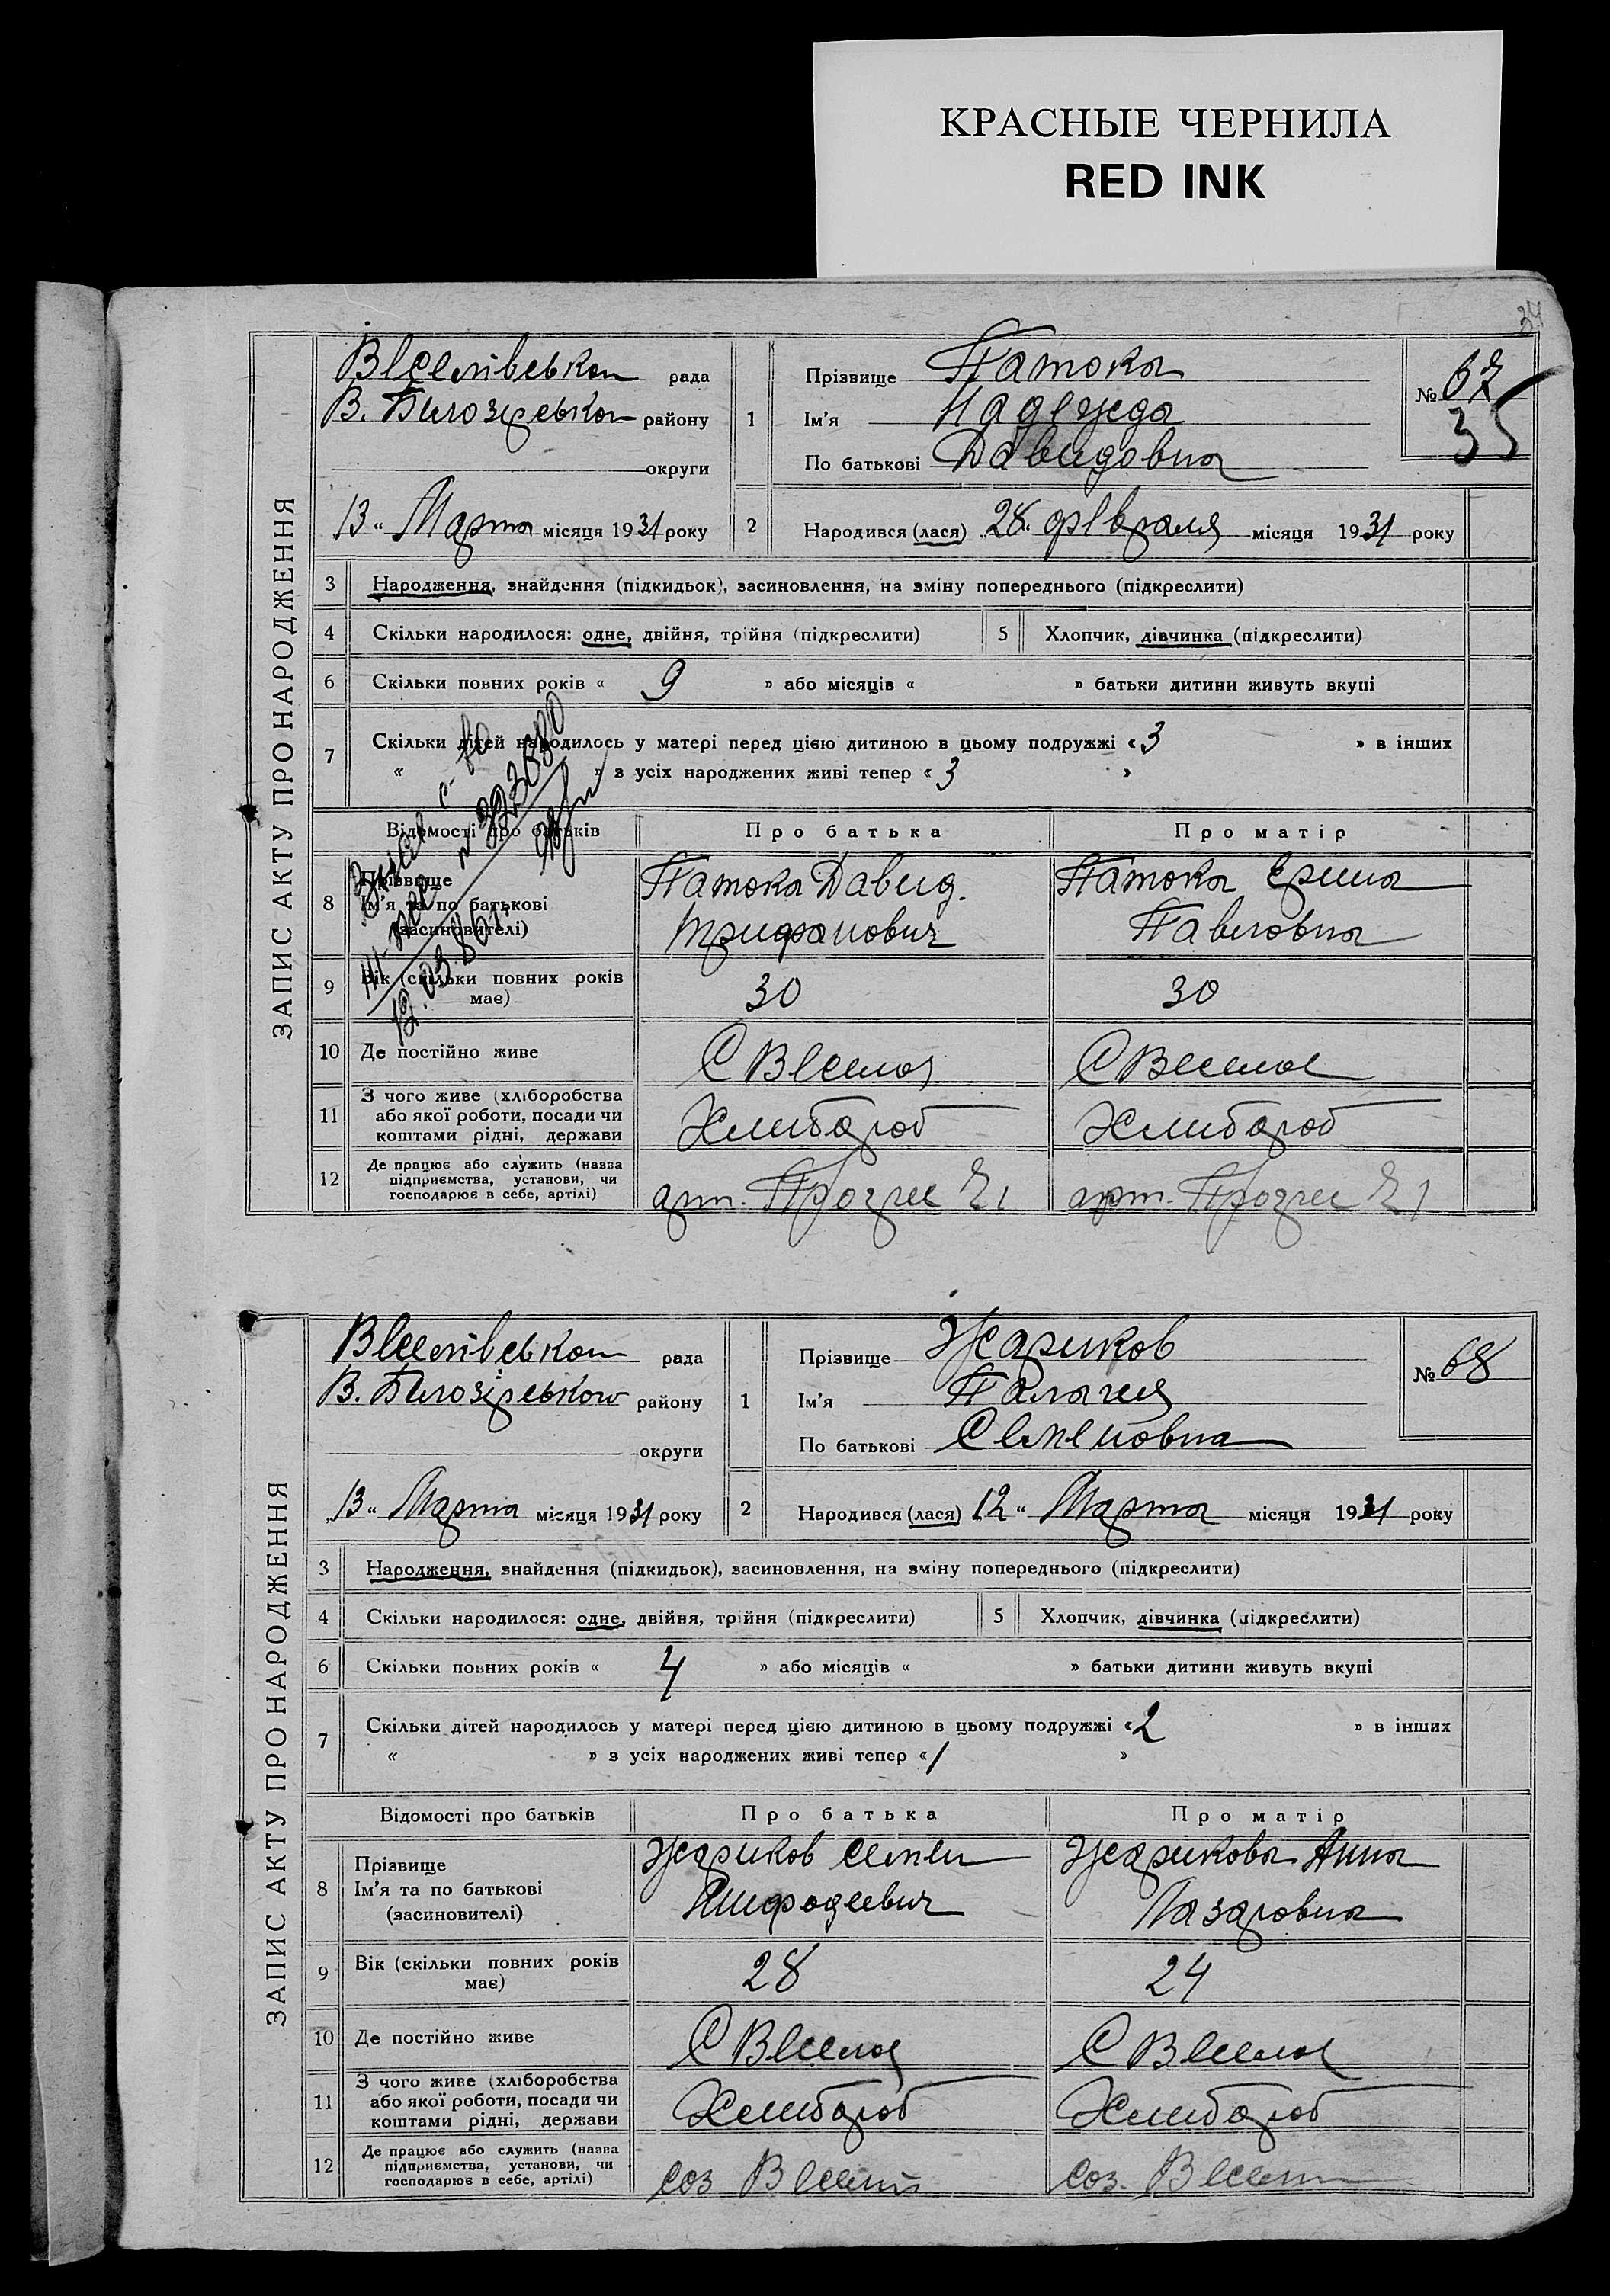 КРАСНЫЕ ЧЕРНИЛА
RED INK
34
ЗАПИС АКТУ ПРО НАРОДЖЕННЯ
Веселівськой рада
В. Билозерськой району
округи
13 " Марта місяця 1931 року
1
Прізвище Патока
Ім'я Надежда
По батькові Давидовна
№ 67
35
2
Народився (лася) 28. февраля місяця 1931 року
3 Народження, знайдення (підкидьок), засиновлення, на зміну попереднього (підкреслити)
4 Скільки народилося: одне, двійня, трійня (підкреслити) 5 Хлопчик, дівчинка (підкреслити)
6 Скільки повних років « 9 » або місяців « » батьки дитини живуть вкупі
7 Скільки дітей народилось у матері перед цією дитиною в цьому подружжі « 3 » в інших
« » з усіх народжених живі тепер « 3 »
12.03.86г.
Відомості про батьків Про батька Про матір
8 Прізвище
Ім'я та по батькові
(засиновителі)
Патока Давид.
Трифанович
Патока Ерина
Павловна
9 Вік (скільки повних років має) 30 30
10 Де постійно живе С Веселое С Веселое
11 З чого живе (хліборобства
або якої роботи, посади чи
коштами рідні, держави
Хлибороб Хлибороб
12 Де працює або служить (назва
підприємства, установи, чи
господарює в себе, артілі)
арт. арт.
ЗАПИС АКТУ ПРО НАРОДЖЕННЯ
Веселівськой рада
В. Билозірськой району
округи
„ 13 " Марта місяця 1931 року
1
Прізвище Жариков
Ім'я Палагия
По батькові Семеновна
№ 68
2
Народився (лася) „12 " Марта місяця 1931 року
3 Народження, знайдення (підкидьок), засиновлення, на зміну попереднього (підкреслити)
4 Скільки народилося: одне, двійня, трійня (підкреслити) 5 Хлопчик, дівчинка (підкреслити)
6 Скільки повних років « 4 » або місяців « » батьки дитини живуть вкупі
7 Скільки дітей народилось у матері перед цією дитиною в цьому подружжі « 2 » в інших
« » з усіх народжених живі тепер « 1 »
Відомості про батьків Про батька Про матір
8 Прізвище
Ім'я та по батькові
(засиновителі)
Жариков Семен
Жарикова Анна
Лазаровна
9 Вік (скільки повних років має) 28 24
10 Де постійно живе С Веселое С Веселое
11 З чого живе (хліборобства
або якої роботи, посади чи
коштами рідні, держави
Хлибороб Хлибороб
12 Де працює або служить (назва
підприємства, установи, чи
господарює в себе, артілі)
Соз Соз.